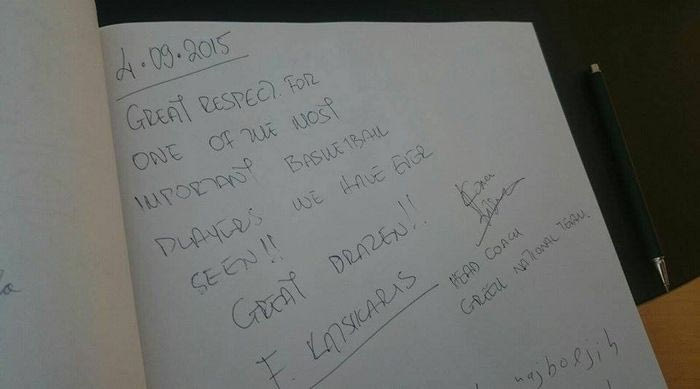 4.09.2015
GREAT RESPECT FOR
ONE OF THE MOST
IMPORTANT BASKETBALL
PLAYERS WE HAVE EVER
SEEN!!
GREAT DRAZEN!!
F. KATSIKARIS
HEAD COACH
GREEK NATIONAL TEAM.
najboljih